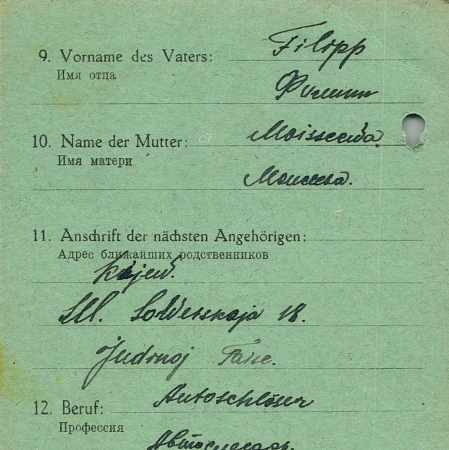 9. Vorname des Vaters: Filipp
Имя отца
Филипп
10. Name der Mutter: Moisseewa
Имя матери
Моисеева.
11. Anschrift der nächsten Angehörigen:
Адрес ближайших родственников
Kijew.
18.
12. Beruf: Autoschlosser
Профессия
Автослесарь.